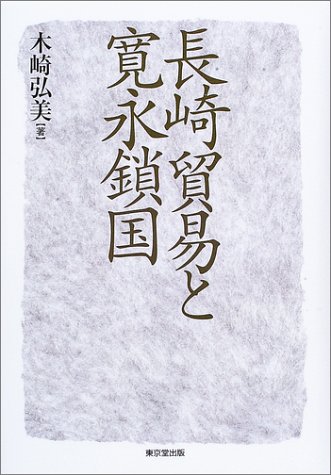 長崎貿易と
寛永鎖国
木崎弘美[著]
東京堂出版